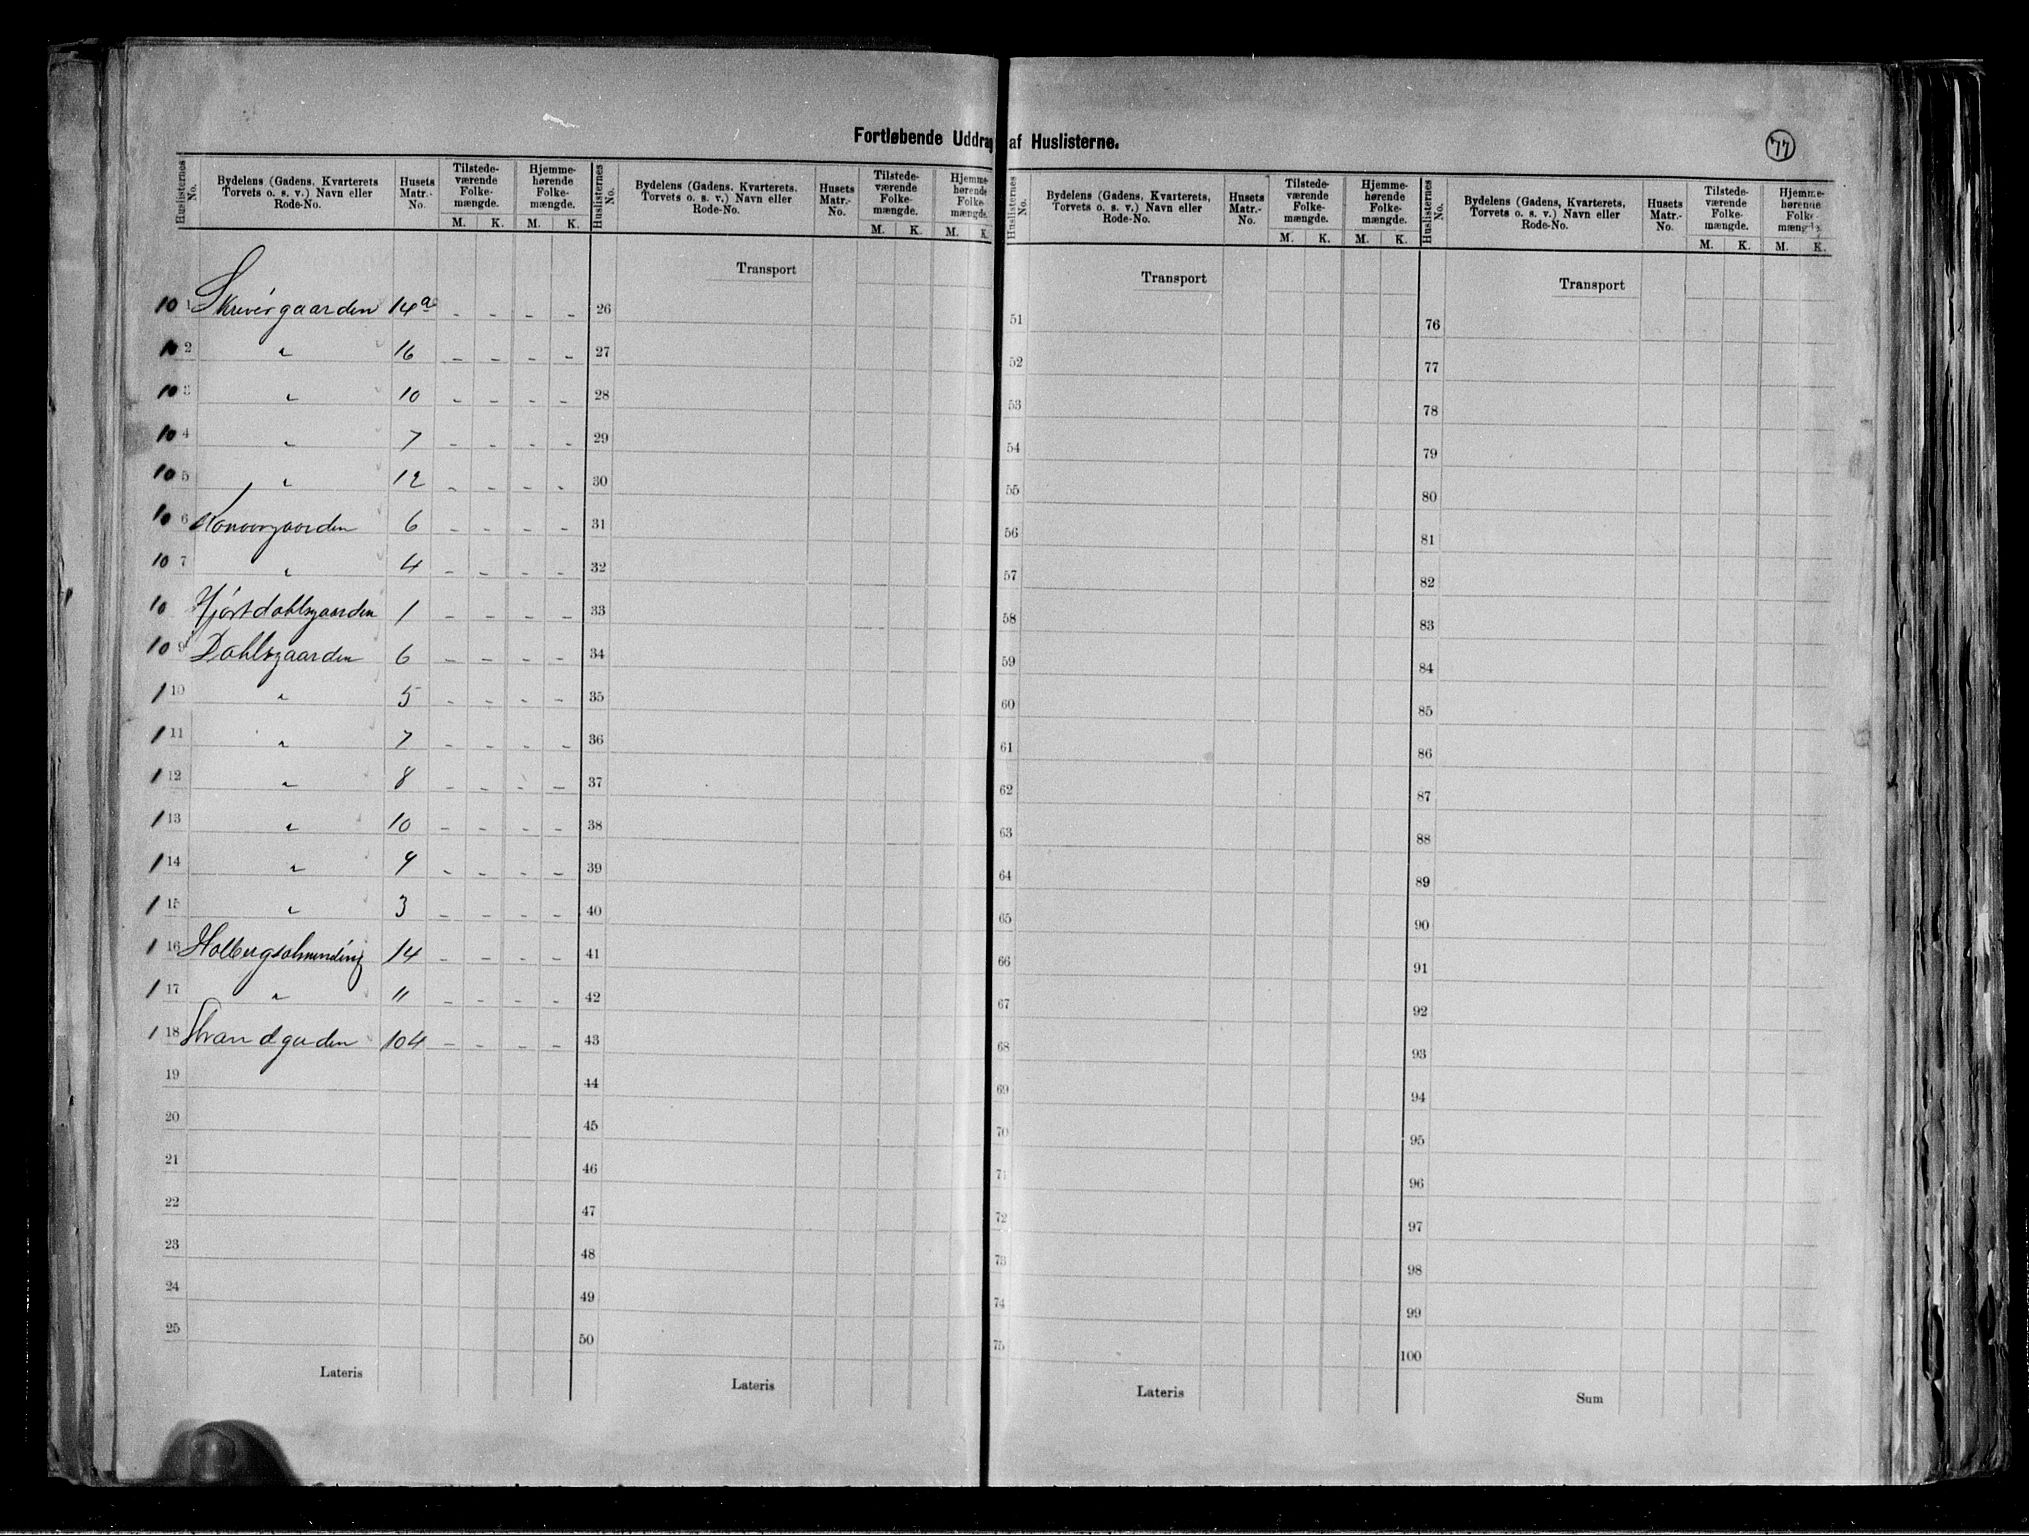 Fortløbende Uddrag af Huslisterne.
77
Huslisternes No. Bydelens (Gadens, Kvarterets Torvets o. s. v.) Navn eller Rode-No. Husets Matr.-No. Tilstede-værende Folke-mængde. M. K. Hjemme-hørende Folke-mængde. M. K.
Huslisternes No. Bydelens (Gadens, Kvarterets, Torvets o. s. v.) Navn eller Rode-No. Husets Matr.-No. Tilstede-værende Folke-mængde. M. K. Hjemme-hørende Folke-mængde. M. K.
Huslisternes No. Bydelens (Gadens, Kvarterets, Torvets o. s. v.) Navn eller Rode-No. Husets Matr.-No. Tilstede-værende Folke-mængde. M. K. Hjemme-hørende Folke-mængde. M. K.
Huslisternes No. Bydelens (Gadens, Kvarterets, Torvets o. s. v.) Navn eller Rode-No. Husets Matr.-No. Tilstede-værende Folke-mængde. M. K. Hjemme-hørende Folke-mængde. M. K.
10 1 Skrivergaarden 14a - - - -
10 2 " 16 - - - -
10 3 " 10 - - - -
10 4 " 7 - - - -
10 5 " 12 - - - -
10 6 6 - - - -
10 7 " 4 - - - -
10 Hjortdahlsgaarden 1 - - - -
10 9 Dahlsgaarden 6 - - - -
1 10 " 5 - - - -
1 11 " 7 - - - -
1 12 " 8 - - - -
1 13 " 10 - - - -
1 14 " 9 - - - -
1 15 " 3 - - - -
1 16 Holbergsalmending 14 - - - -
1 17 " 11 - - - -
1 18 Strandgaden 104 - - - -
19
20
21
22
23
24
25
Lateris
Transport
26
27
28
29
30
31
32
33
34
35
36
37
38
39
40
41
42
43
44
45
46
47
48
49
50
Lateris
Transport
51
52
53
54
55
56
57
58
59
60
61
62
63
64
65
66
67
68
69
70
71
72
73
74
75
Lateris
Transport
76
77
78
79
80
81
82
83
84
85
86
87
88
89
90
91
92
93
94
95
96
97
98
99
100
Sum